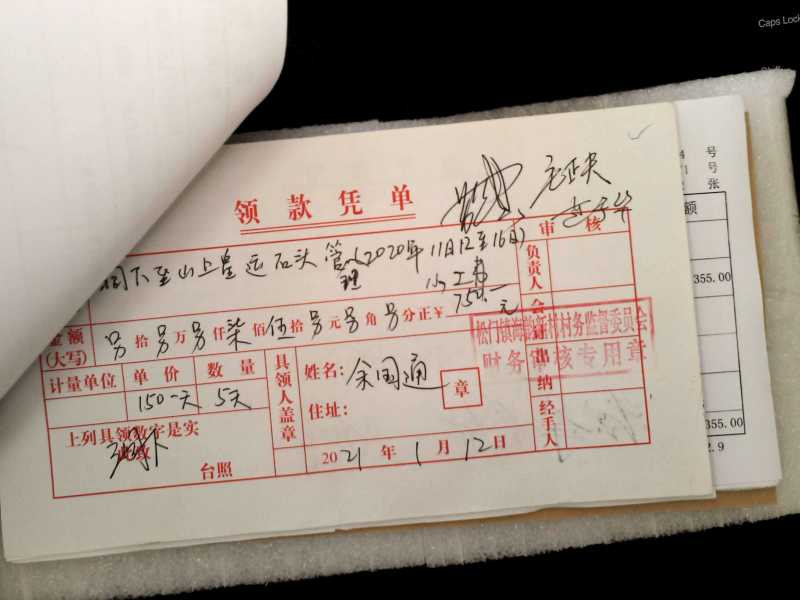 Caps Lock
号
号
张
领款凭单
审 核
下至山上皇运石头管理(2020年11月12至16日)
小工
750.一元
355.00
负责人
金额
(大写)
拾 万 仟 柒 佰 伍 拾 元 角 分 正 ¥
会计出纳
松门镇 村村务监督委员会
财务审核专用章
计量单位 单价 数量
150一天 5天
具领人盖章
姓名: 余国通
章
住址:
经手人
上列具领数字是实
此致
台照
2021年1月12日
355.00
2.9